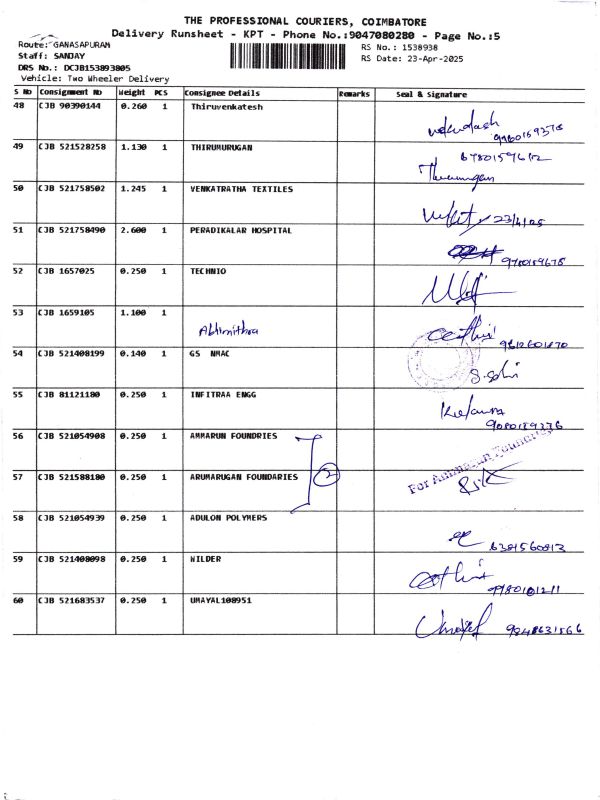 THE PROFESSIONAL COURIERS, COIMBATORE
Delivery Runsheet - KPT - Phone No.:9047080280 - Page No.:5
Route: GANASAPURAM
RS No.: 1538938
Staff: SANJAY
RS Date: 23-Apr-2025
DRS No.: DCJB153893805
Vehicle: Two Wheeler Delivery
S No Consignment No Weight PCS Consignee Details Remarks Seal & Signature
48 CJB 90390144 0.260 1 Thiruvenkatesh
49 CJB 521528258 1.130 1 THIRUMURUGAN
50 CJB 521758502 1.245 1 VENKATRATHA TEXTILES
23/4/25
51 CJB 521758490 2.600 1 PERADIKALAR HOSPITAL
52 CJB 1657025 0.250 1 TECHNIO
53 CJB 1659105 1.100 1
Abhimithra
54 CJB 521408199 0.140 1 GS NMAC
55 CJB 81121180 0.250 1 INFITRAA ENGG
56 CJB 521054908 0.250 1 AMMARUN FOUNDRIES
57 CJB 521588180 0.250 1 ARUMARUGAN FOUNDARIES 2
58 CJB 521054939 0.250 1 ADULON POLYMERS
6381560813
59 CJB 521408098 0.250 1 WILDER
60 CJB 521683537 0.250 1 UMAYAL108951